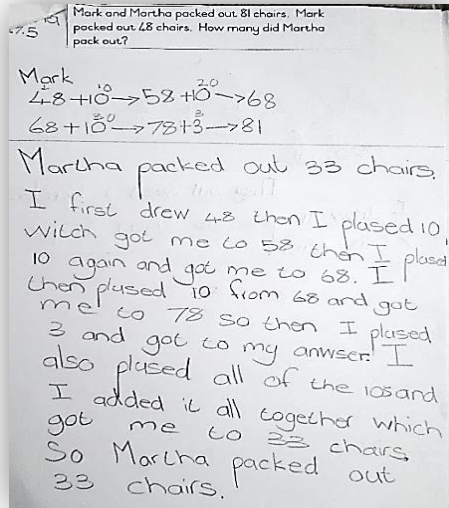 Mark and Martha packed out 81 chairs. Mark
packed out 48 chairs. How many did Martha
pack out?
Mark
10 20
48+10→58+10→68
30 3
68+10→78+3→81
Martha packed out 33 chairs.
I first drew 48 then I plused 10
witch got me to 58 then I plused
10 again and got me to 68. I
then plused 10 from 68 and got
me to 78 so then I plused
3 and got to my anwser! I
also plused all of the 10s and
I added it all together which
got me to 33 chairs
So Martha packed out
33 chairs.